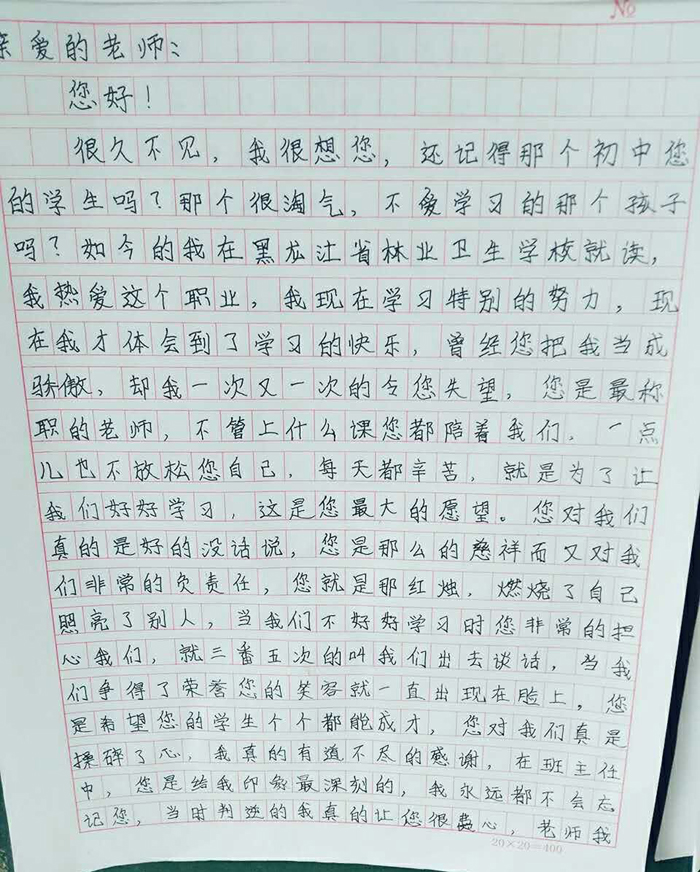 No
亲爱的老师:
您好!
很久不见,我很想您,还记得那个初中您
的学生吗?那个很淘气,不爱学习的那个孩子
吗?如今的我在黑龙江省林业卫生学校就读,
我热爱这个职业,我现在学习特别的努力,现
在我才体会到了学习的快乐,曾经您把我当成
骄傲,却我一次又一次的令您失望,您是最称
职的老师,不管上什么课您都陪着我们.一点
儿也不放松您自己,每天都辛苦,就是为了让
我们好好学习,这是您最大的愿望。您对我们
真的是好的没话说,您是那么的慈祥而又对我
们非常的负责任,您就是那红烛,燃烧了自己
照亮了别人,当我们不好好学习时您非常的担
心我们,就三番五次的叫我们出去谈话,当我
们争得了荣誉您的笑容就一直出现在脸上,您
是希望您的学生个个都能成才,您对我们真是
操碎了心,我真的有道不尽的感谢,在班主任
中,您是给我印象最深刻的,我永远都不会忘
记您,当时判逆的我真的让您很费心,老师我
20×20=400